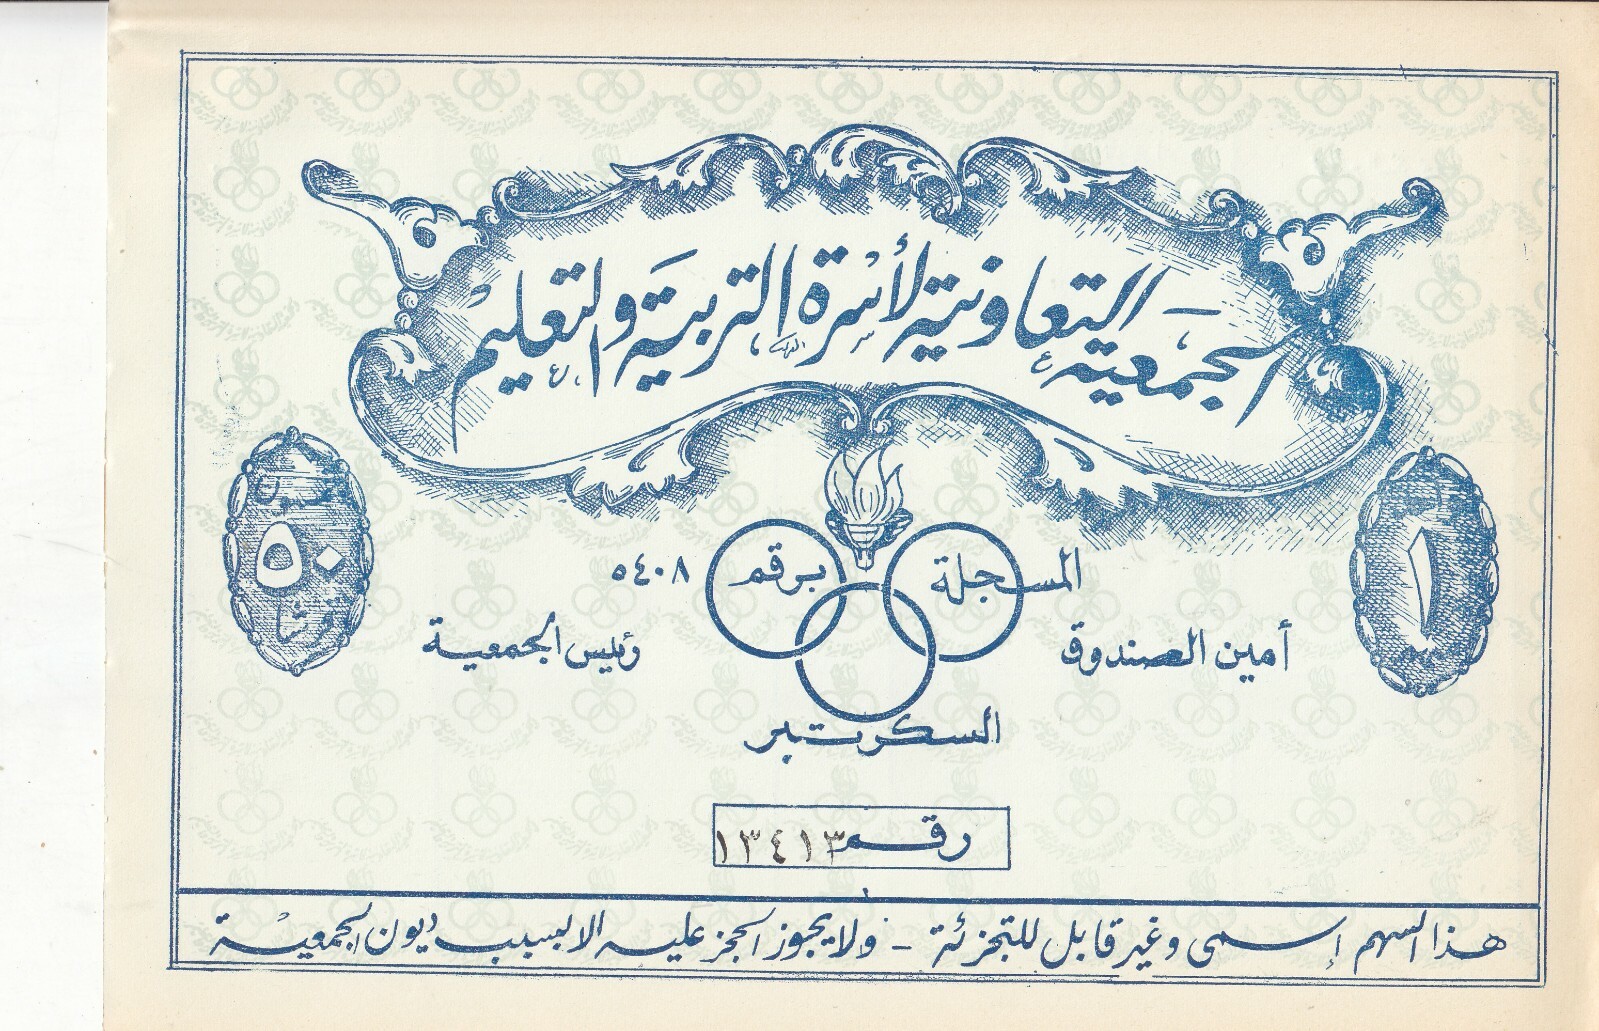 الجمعية التعاونية لأسرة التربية والتعليم
المسجلة برقم ٥٤٠٨
١
خمسون
٥٠
قرشا
أمين الصندوق
رئيس الجمعية
السكرتير
رقم ١٣٤١٣
هذا السهم إسمى وغير قابل للتجزئة - ولا يجوز الحجز عليه الا بسبب ديون الجمعية